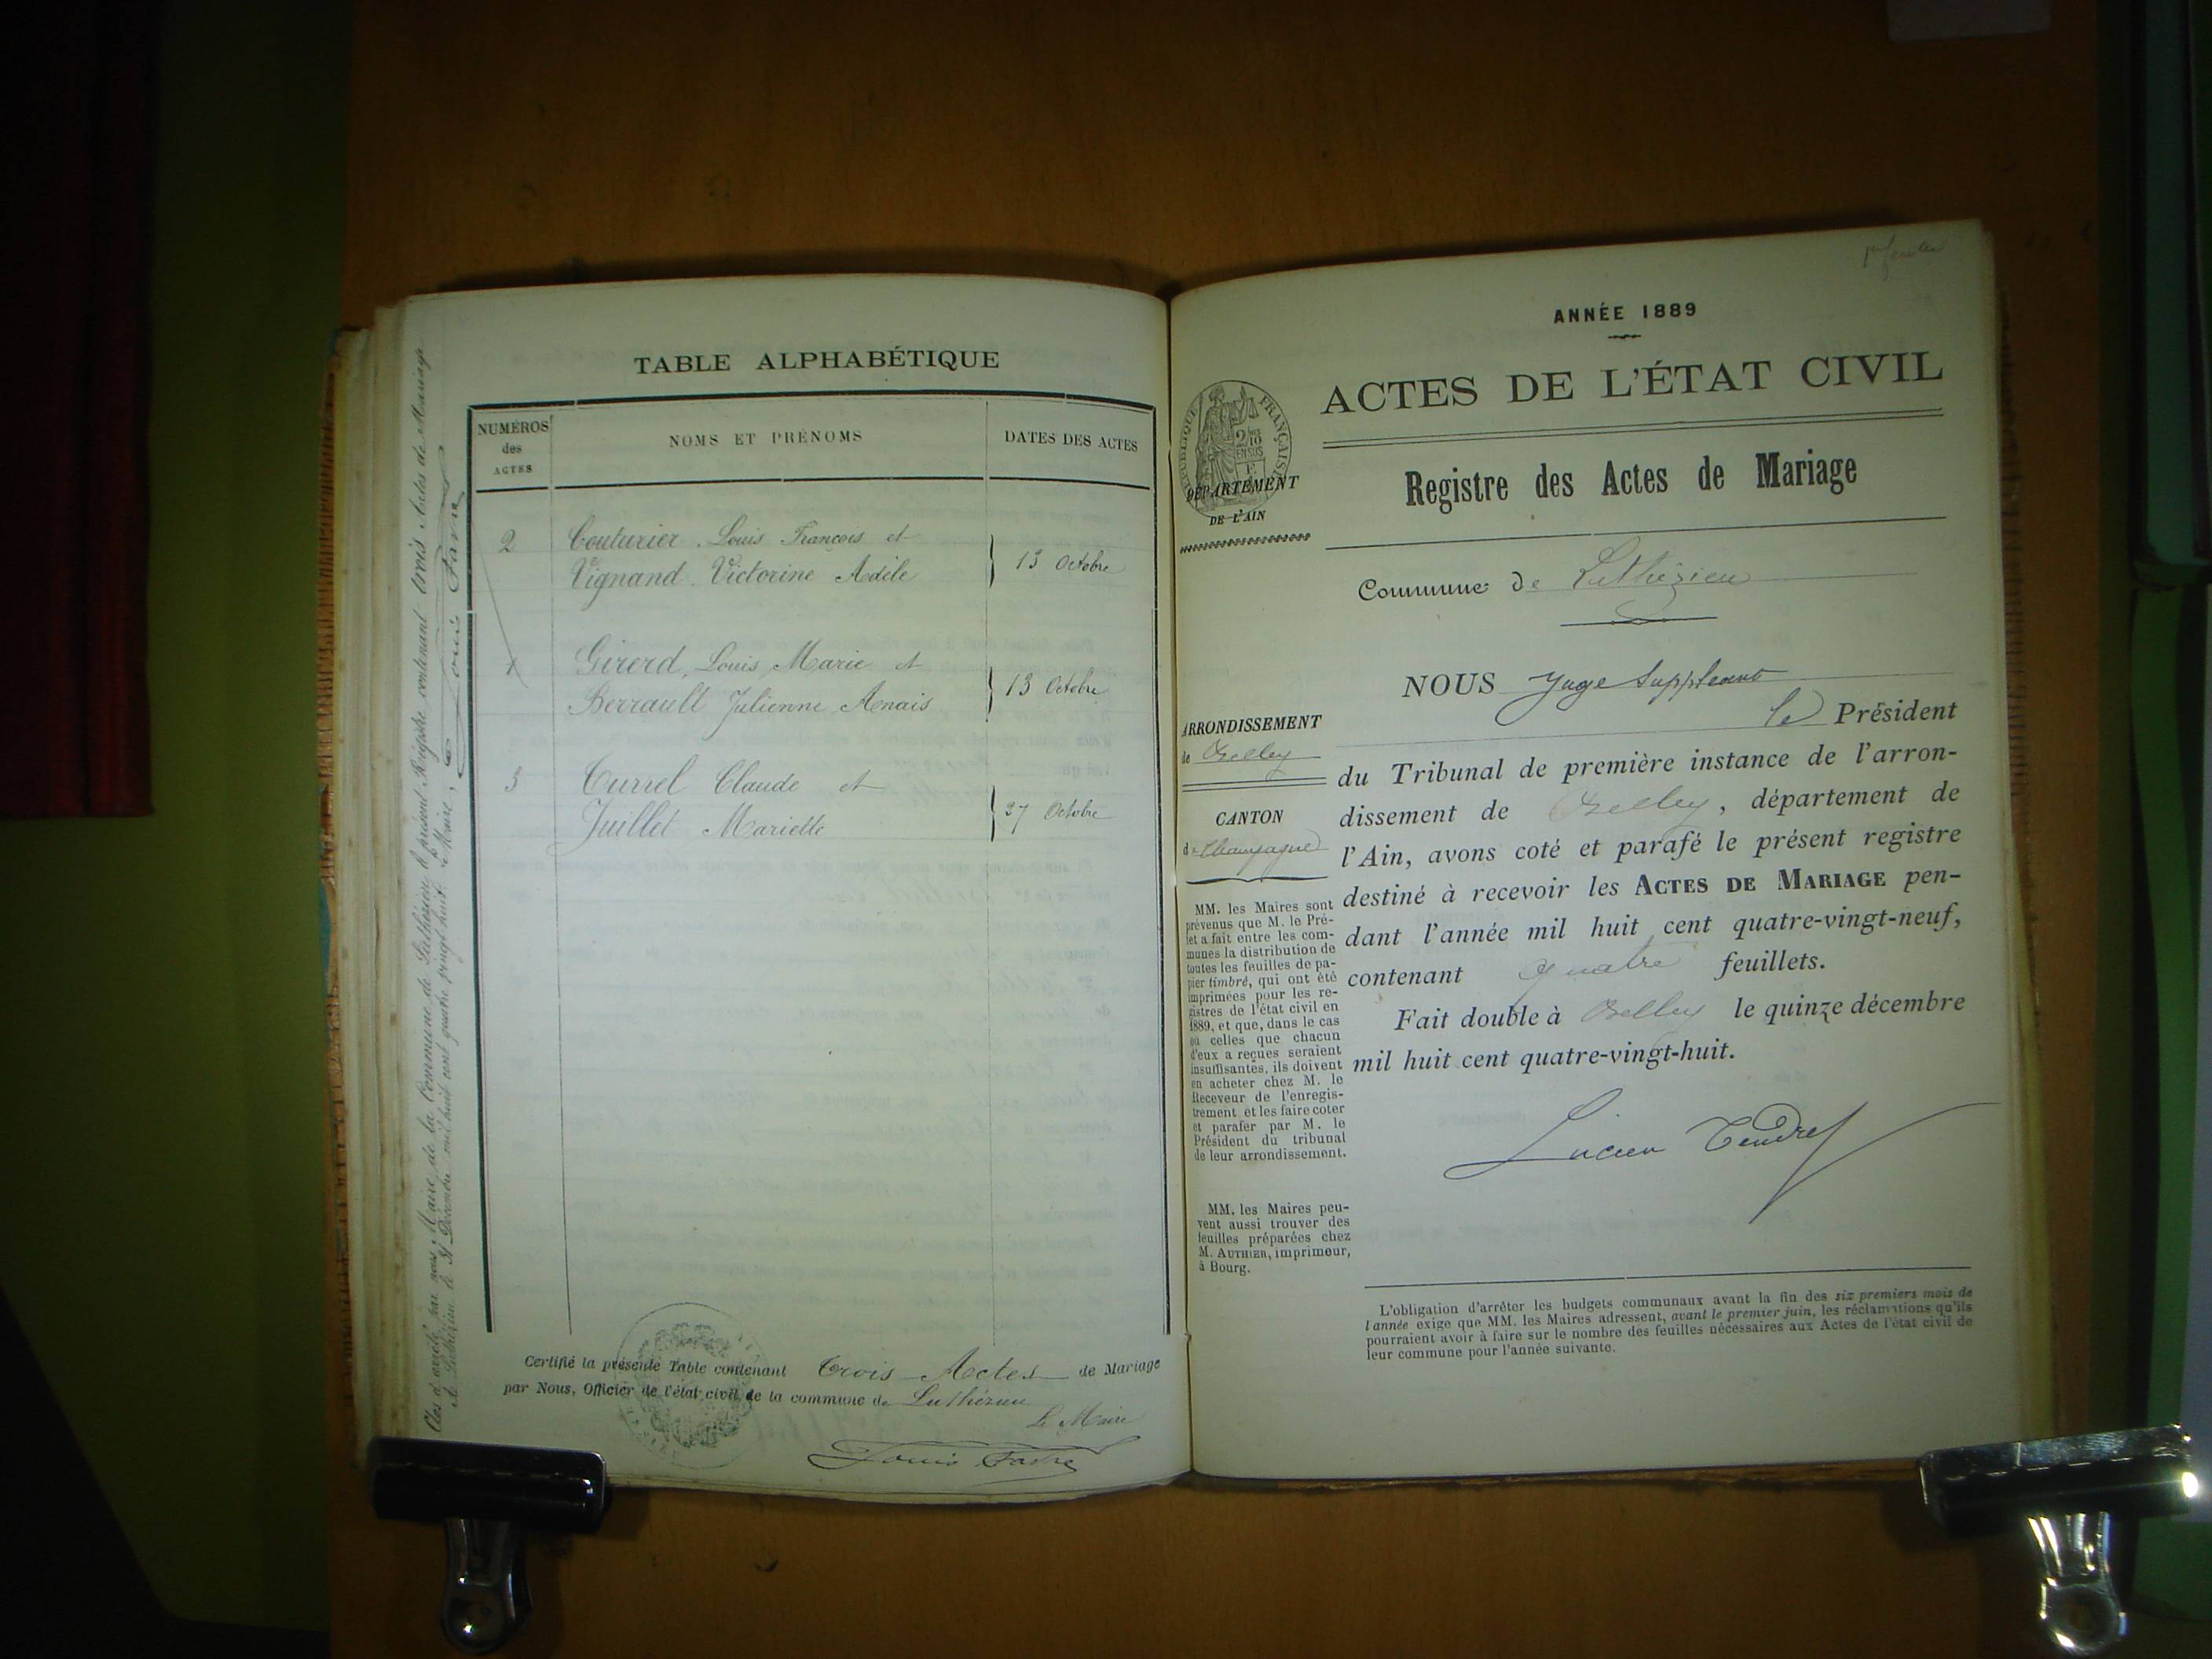 TABLE ALPHABÉTIQUE
NUMÉROS
des
ACTES
NOMS ET PRÉNOMS
DATES DES ACTES
2
Couturier Louis François et
Vignand Victorine Adèle
13 Octobre
1
Girerd, Louis Marie et
Berrault Julienne Anais
13 Octobre
3
Currel Claude et
Juillet Mariette
27 Octobre
Certifié la présente Table contenant Trois Actes de Mariage
par Nous, Officier de l'état civil de la commune de Luthézieu
Le Maire
Louis Favre
Clos et arrêté par nous, Maire de la Commune de Luthézieu le présent Registre contenant trois Actes de Mariage
à Luthézieu le 31 Décembre mil huit cent quatre vingt huit. Le Maire,
Louis Favre
1er feuillet
ANNÉE 1889
ACTES DE L'ÉTAT CIVIL
RÉPUBLIQUE FRANÇAISE
2/10
EN SUS
DÉPARTEMENT
DE L'AIN
Registre des Actes de Mariage
Commune de Luthézieu
NOUS Juge Suppléant
le Président
du Tribunal de première instance de l'arron-
dissement de Belley, département de
l'Ain, avons coté et parafé le présent registre
destiné à recevoir les ACTES DE MARIAGE pen-
dant l'année mil huit cent quatre-vingt-neuf,
contenant quatre feuillets.
Fait double à Belley le quinze décembre
mil huit cent quatre-vingt-huit.
Lucien Tendret
ARRONDISSEMENT
de Belley
CANTON
de Champagne
MM. les Maires sont
prévenus que M. le Pré-
fet a fait entre les com-
munes la distribution de
toutes les feuilles de pa-
pier timbré, qui ont été
imprimées pour les re-
gistres de l'état civil en
1889, et que, dans le cas
où celles que chacun
d'eux a reçues seraient
insuffisantes, ils doivent
en acheter chez M. le
Receveur de l'enregis-
trement et les faire coter
et parafer par M. le
Président du tribunal
de leur arrondissement.
MM. les Maires peu-
vent aussi trouver des
feuilles préparées chez
M. AUTHIER, imprimeur,
à Bourg.
L'obligation d'arrêter les budgets communaux avant la fin des six premiers mois de
l'année exige que MM. les Maires adressent, avant le premier juin, les réclamations qu'ils
pourraient avoir à faire sur le nombre des feuilles nécessaires aux Actes de l'état civil de
leur commune pour l'année suivante.